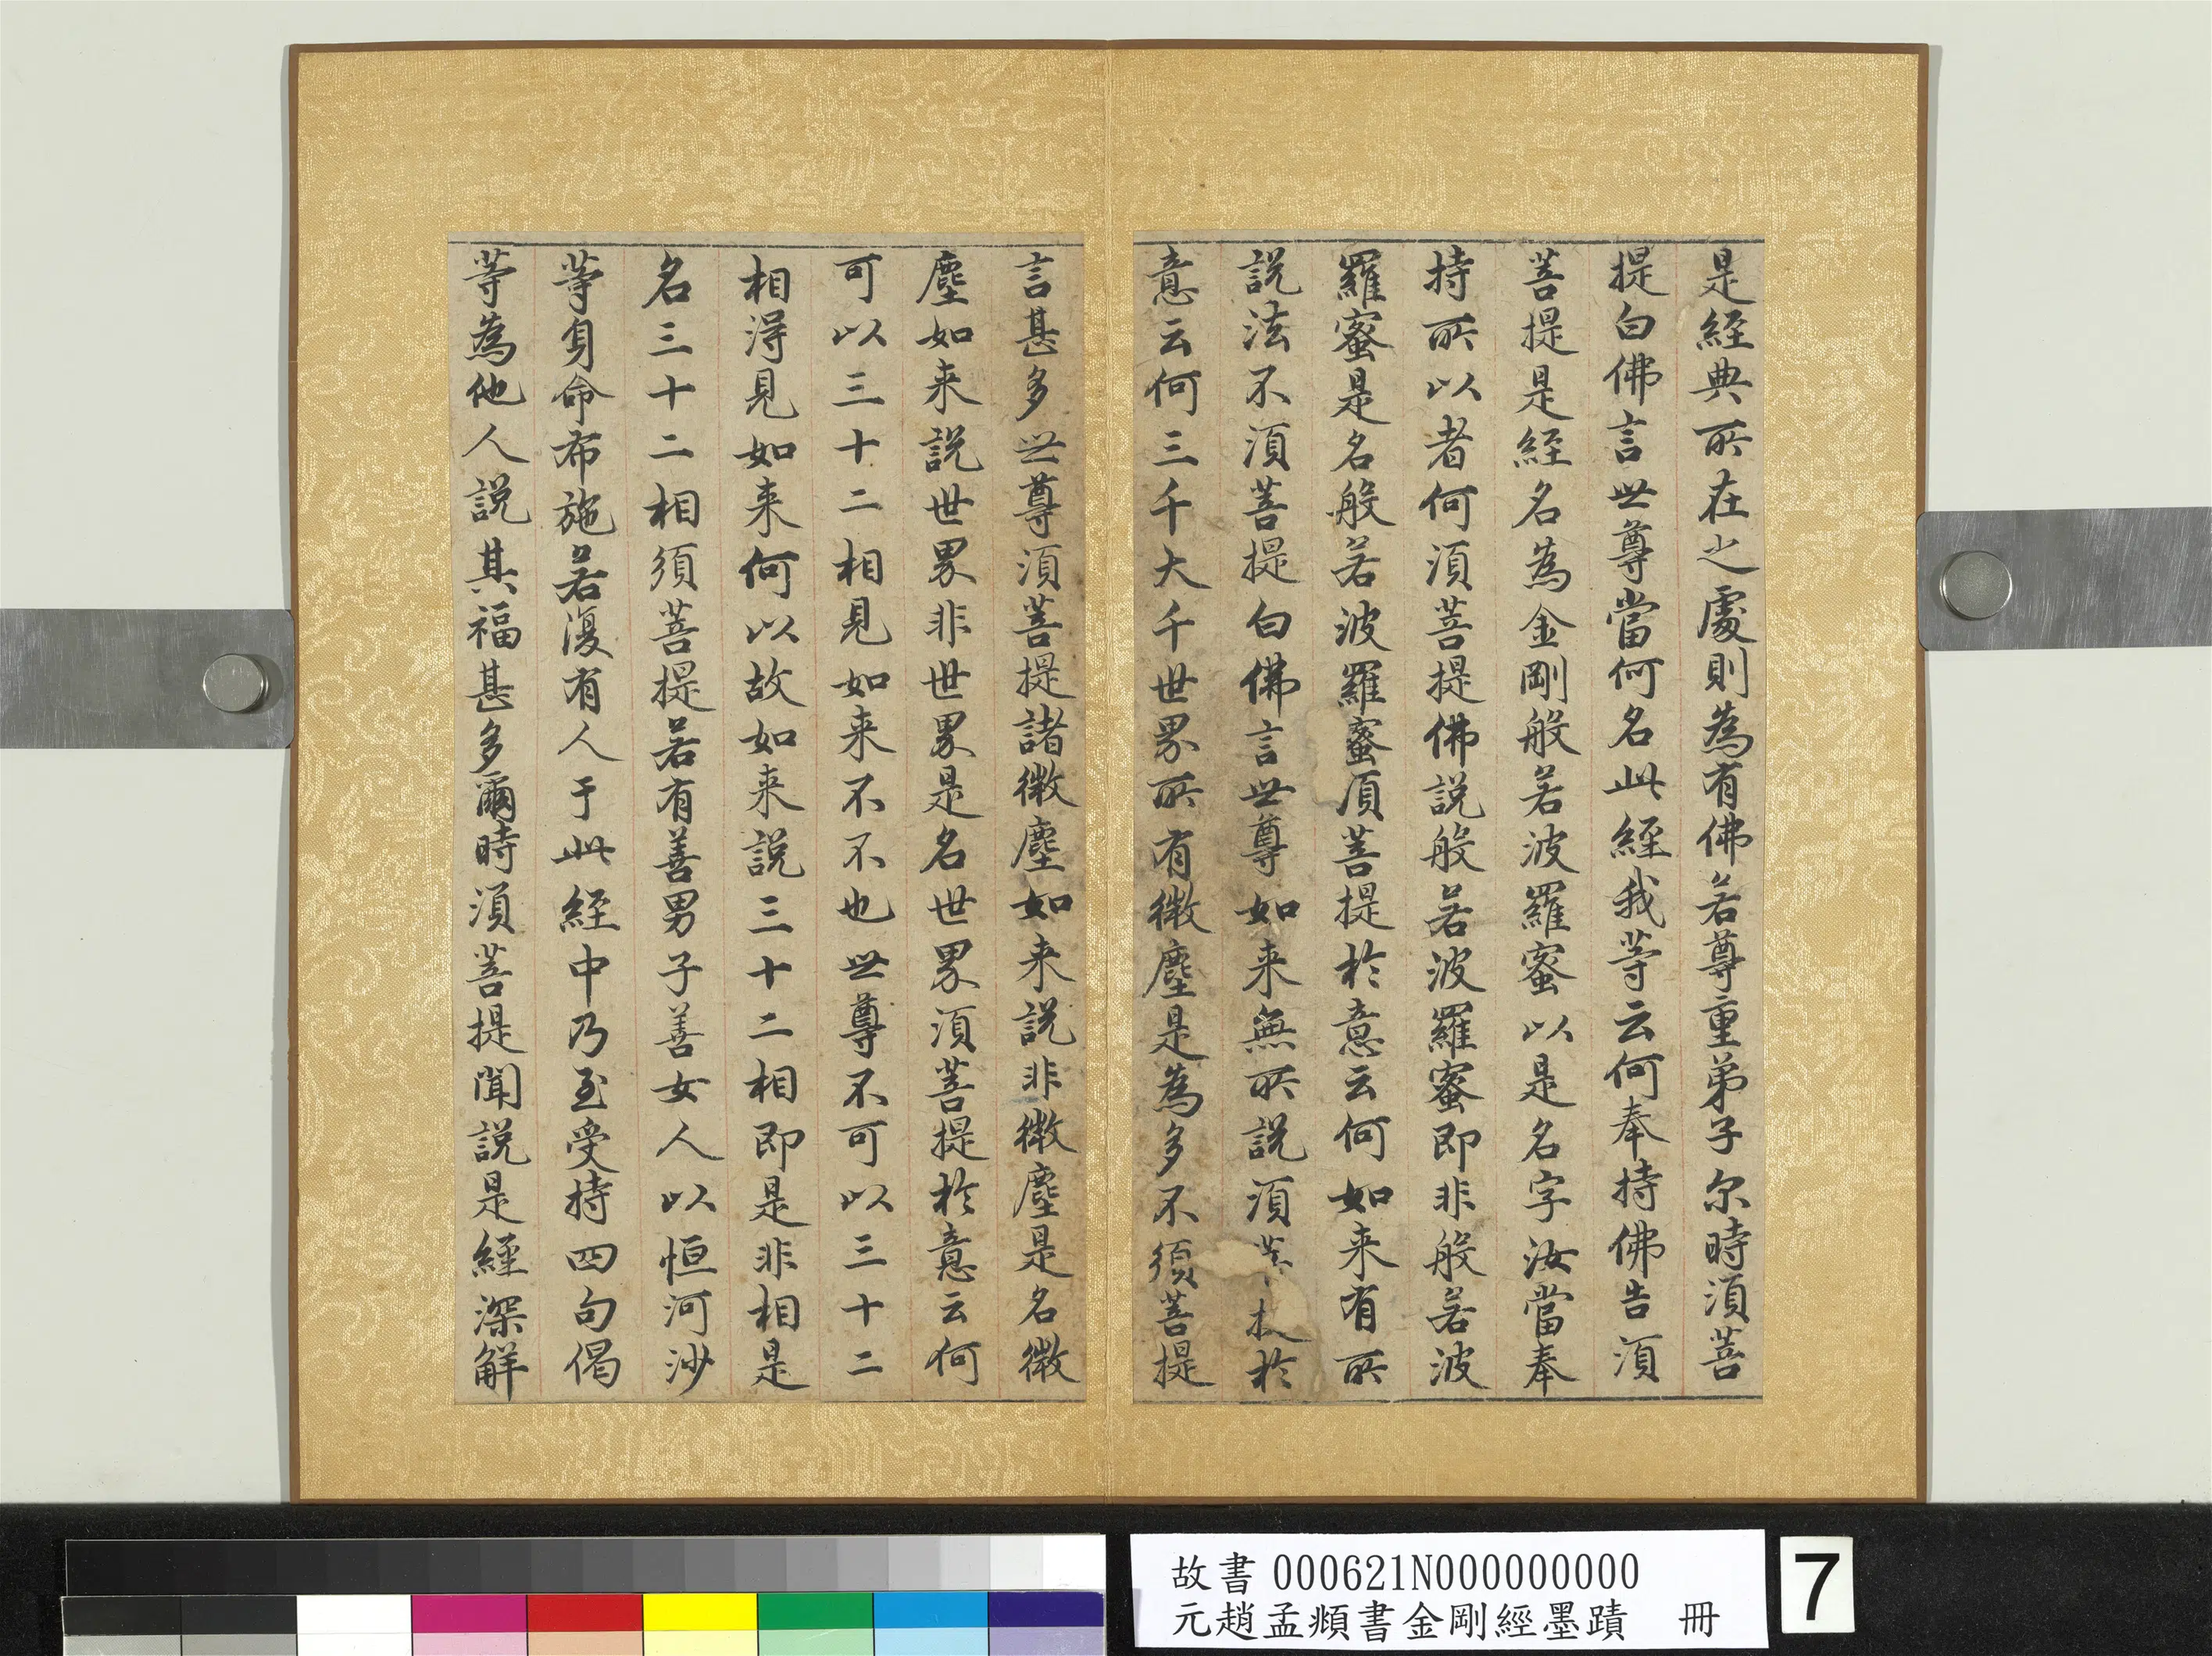 是經典所在之處則為有佛若尊重弟子尔時湏菩
提白佛言世尊當何名此經我等云何奉持佛告湏
菩提是經名為金剛般若波羅蜜以是名字汝當奉
持所以者何湏菩提佛說般若波羅蜜即非般若波
羅蜜是名般若波羅蜜湏菩提於意云何如来有所
說法不湏菩提白佛言世尊如来無所說湏菩提於
意云何三千大千世界所有微塵是為多不須菩提
言甚多世尊湏菩提諸微塵如来說非微塵是名微
塵如来說世界非世界是名世界湏菩提於意云何
可以三十二相見如来不不也世尊不可以三十二
相得見如来何以故如来說三十二相即是非相是
名三十二相須菩提若有善男子善女人以恒河沙
等身命布施若復有人于此經中乃至受持四句偈
等為他人說其福甚多爾時湏菩提聞說是經深解
故書 000621N000000000
元趙孟頫書金剛經墨蹟 冊
7